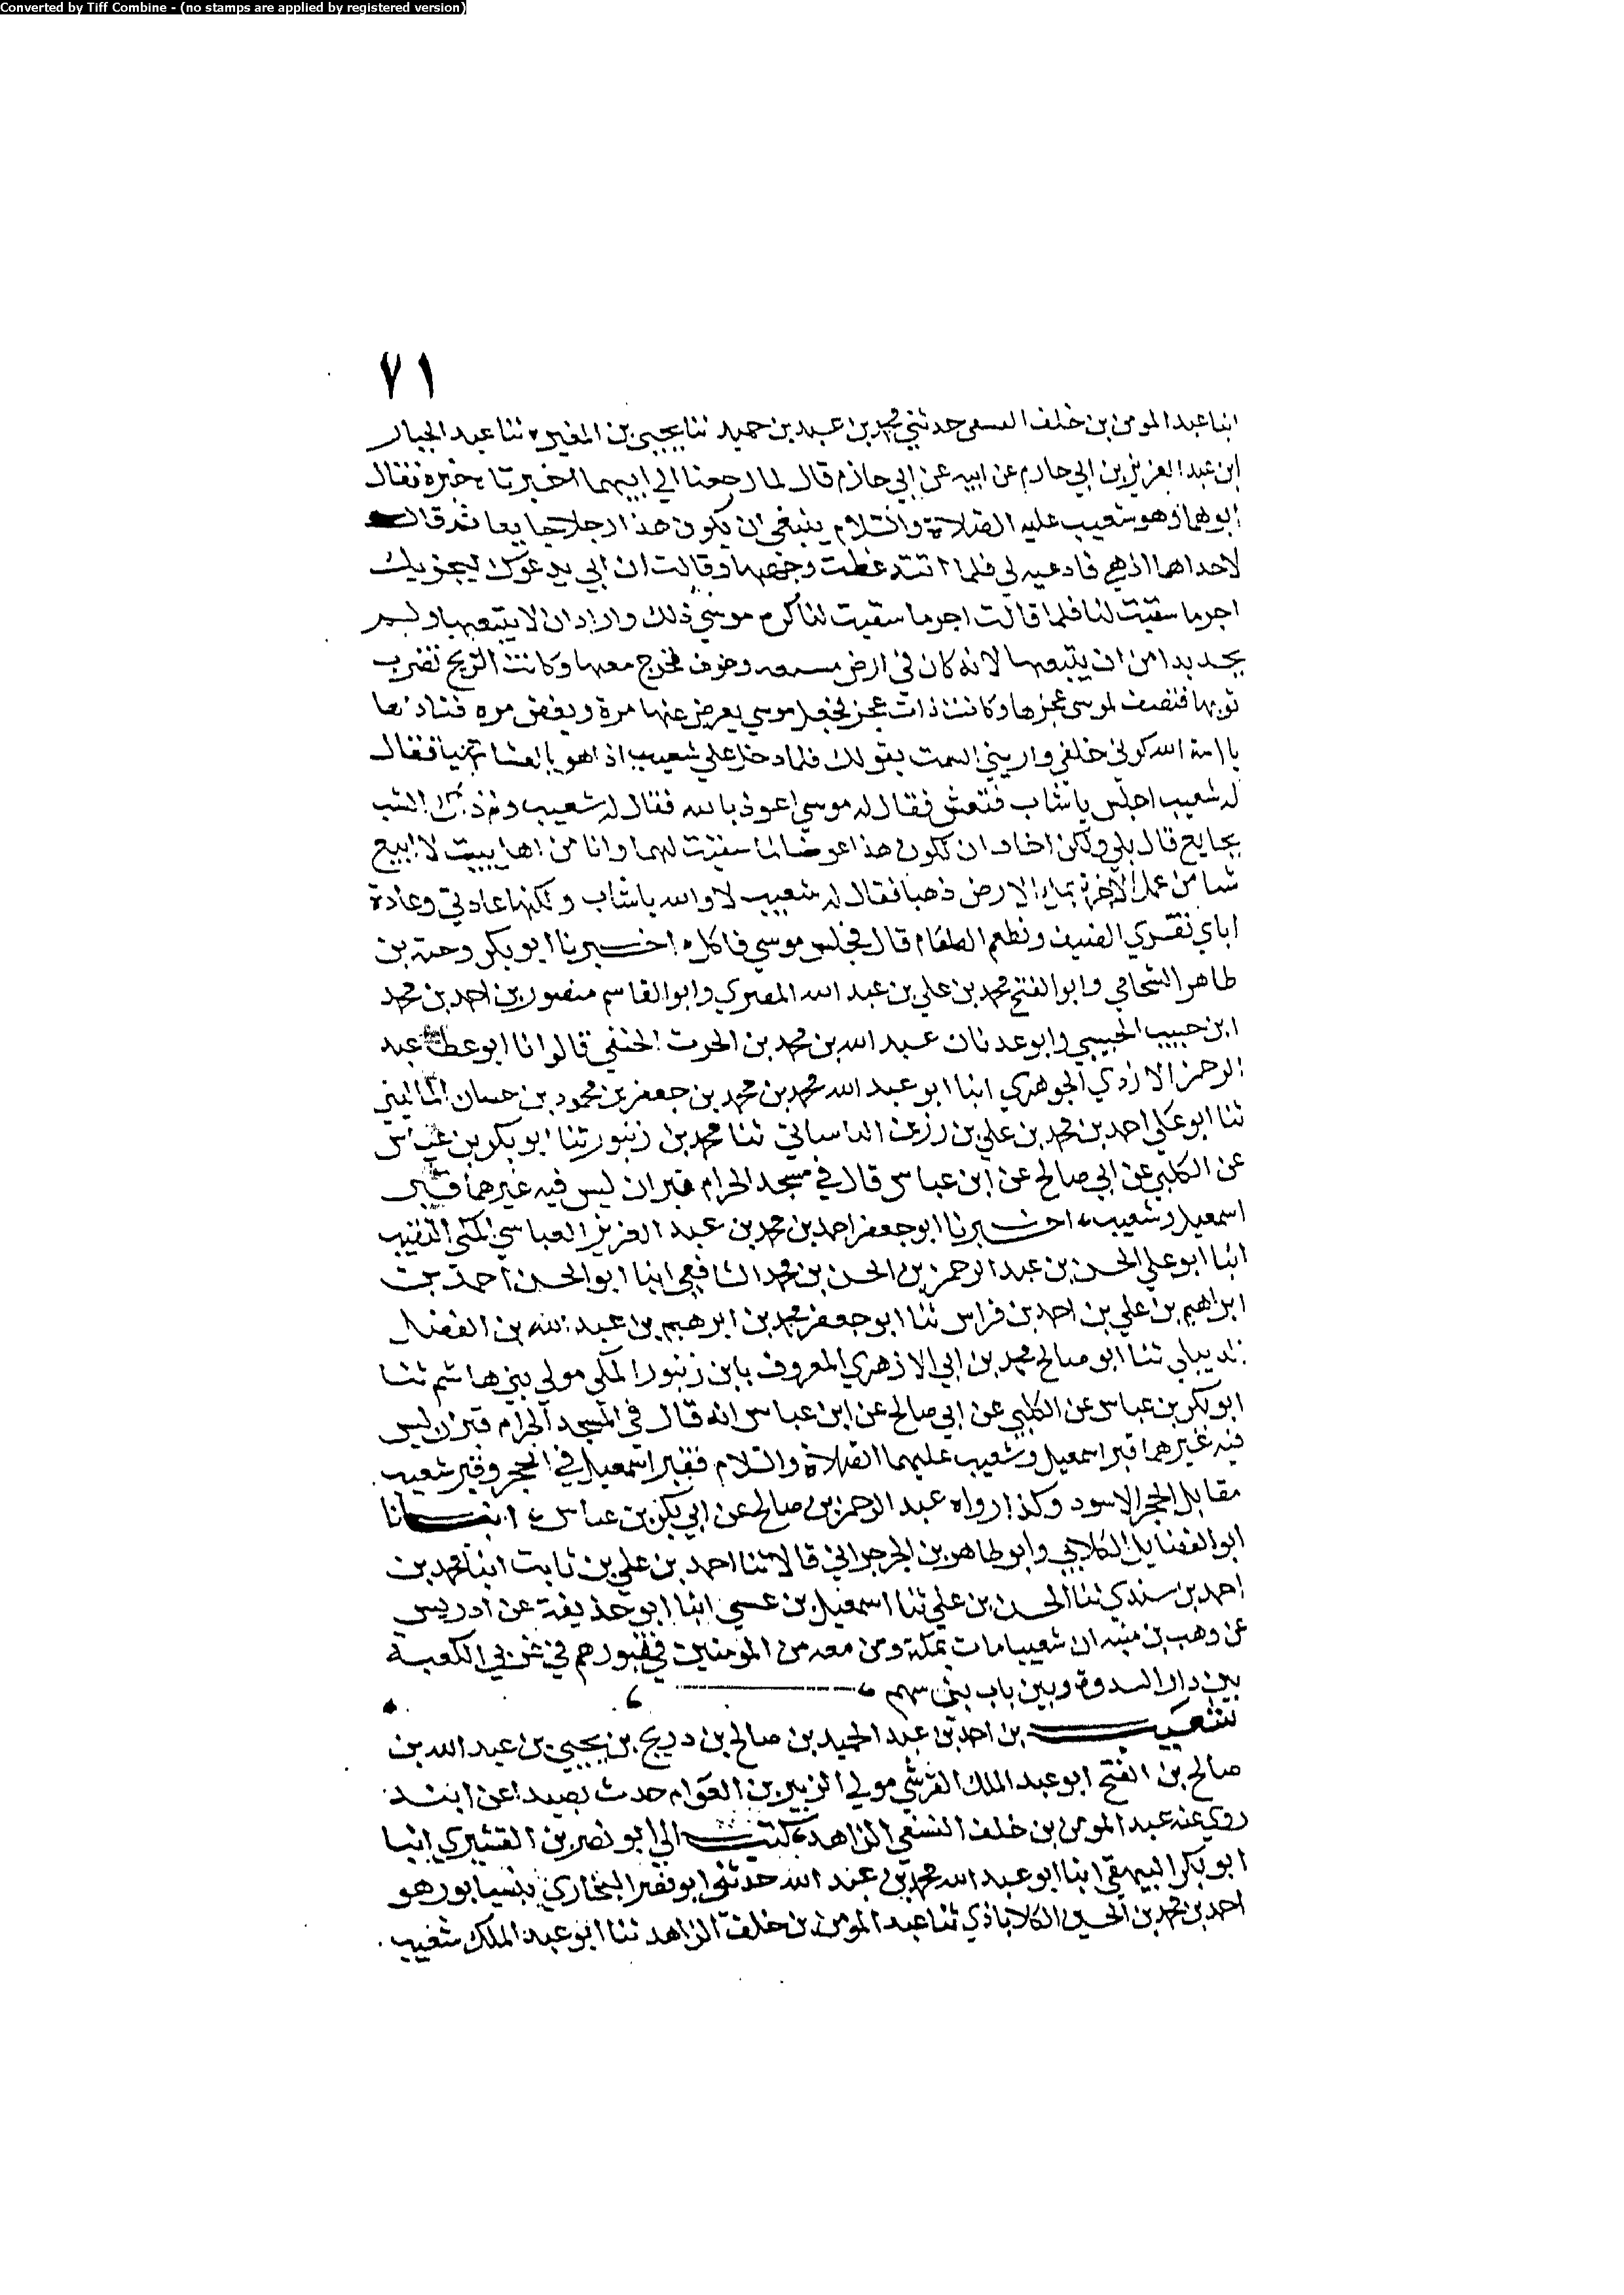 Converted by Tiff Combine - (no stamps are applied by registered version)
٧١
ابنا عبد المومن بن خلف النسفى حدثني محمد بن عبد بن حميد ثنا يحيى بن المغيره ثنا عبد الجبار
ابن عبد العزيز بن ابي حازم عن ابيه عن ابي حازم قال لما رجعنا الي ابيهما اخبرتا خبره فقال
ابوهما وهو شعيب عليه الصلاة والسلام ينبغي ان يكون هذا رجلا جايعا ثم قال
لاحداهما اذهبي فادعيه لي فلما اتته غطت وجهها وقالت ان ابي يدعوك ليجزيك
اجر ما سقيت لنا فلما قالت اجر ما سقيت لنا كره موسي ذلك واراد ان لا يتبعها ولم
يجد بدا من ان يتبعها لانه كان في ارض مسبعه وخوف فخرج معها وكانت الريح تضرب
ثوبها فتصف لموسى عجزها وكانت ذات عجز فجعل موسي يعرض عنها مرة ويغض مره فناداها
يا امة الله كوني خلفي واريني السمت بقولك فلما دخل علي شعيب اذا هو بالعشا تهيا فقال
له شعيب اجلس يا شاب فتعش فقال له موسي اعوذ بالله فقال له شعيب ولم ذاك الست
بجايع قال بلي ولكن اخاف ان تكون هذا عوضا لما سقيت لهما وانا من اهل بيت لا نبيع
شيا من عمل الاخرة بملء الارض ذهبا فقال له شعيب لا والله يا شاب ولكنها عادتي وعادة
اباي نقري الضيف ونطعم الطعام قال فجلس موسي فاكل اخبرنا ابو بكر وجيه بن
طاهر الشحامي وابو الفتح محمد بن علي بن عبد الله المصري وابو القاسم منصور بن احمد بن محمد
ابن حبيب الحبيبي وابو عدنان عبد الله بن محمد بن الحرث الحنفي قالوا انا ابو عطا عبد
الرحمن الازدي الجوهري ابنا ابو عبد الله محمد بن محمد بن جعفر بن محمود بن حسان الماليني
ثنا ابو علي احمد بن محمد بن علي بن رزين الباساني ثنا محمد بن زنبور ثنا ابو بكر بن عياش
عن الكلبي عن ابي صالح عن ابن عباس قال في مسجد الحرام قبران ليس فيه غيرهما قبر
اسمعيل وشعيب اخبرنا ابو جعفر احمد بن محمد بن عبد العزيز العباسي المكي النقيب
ابنا ابو علي الحسن بن عبد الرحمن بن الحسن بن محمد الشافعي ابنا ابو الحسن احمد بن
ابراهيم بن علي بن احمد بن فراس ثنا ابو جعفر محمد بن ابرهيم بن عبد الله بن الفضل
الديبلي ثنا ابو صالح محمد بن ابي الازهري المعروف بابن زنبور المكي مولي بني هاشم ثنا
ابو بكر بن عباس عن الكلبي عن ابي صالح عن ابن عباس انه قال في المسجد الحرام قبران ليس
فيه غيرهما قبر اسمعيل وشعيب عليهما الصلاة والسلام فقبر اسمعيل في الحجر وقبر شعيب
مقابل الحجر الاسود وكذا رواه عبد الرحمن بن صالح عن ابي بكر بن عباس انبانا
ابو الفضايل الكلابي وابو طاهر بن الجرجراني قالا ثنا احمد بن علي بن ثابت ابنا محمد بن
احمد بن سندي ثنا الحسن بن علي ثنا اسمعيل بن عسي ابنا ابو حذيفة عن ادريس
عن وهب بن منبه ان شعيبا مات بمكة ومن معه من المومنين فقبورهم في غربي الكعبة
بين دار الندوة وبين باب بني سهم
شعيب بن احمد بن عبد الحميد بن صالح بن دريج بن يحيي بن عبد الله بن
صالح بن الفتح ابو عبد الملك القرشي مولي الزبير بن العوام حدث بصيدا عن ابيه
روي عنه عبد المومن بن خلف النسفي الزاهد كتب الي ابو نصر بن القشيري ابنا
ابو بكر البيهقي ابنا ابو عبد الله محمد بن عبد الله حدثني ابو نصر البخاري بنيسابور هو
احمد بن محمد بن الحسين الكلاباذي ثنا عبد المومن بن خلف الزاهد ثنا ابو عبد الملك شعيب